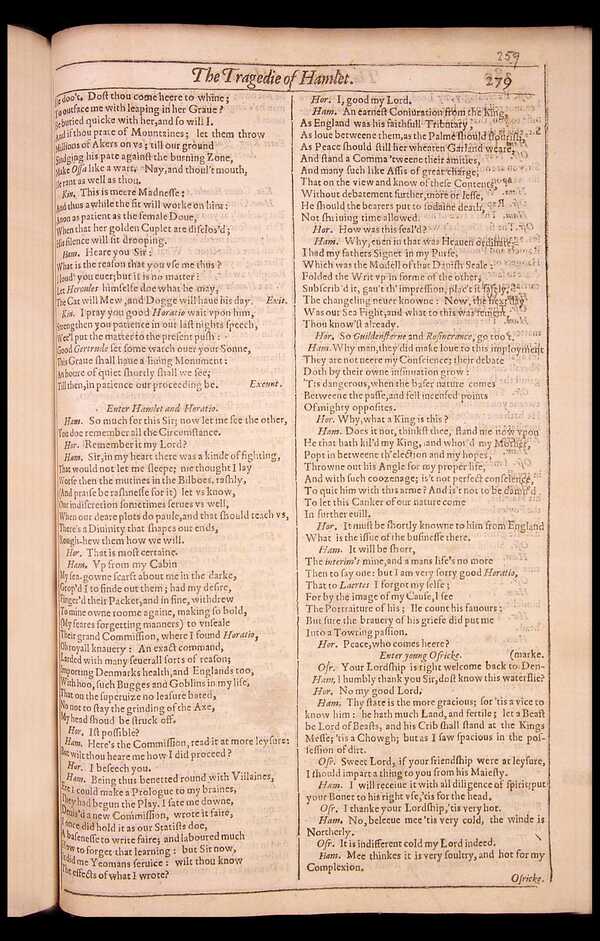 259
The Tragedie of Hamlet. 279
doo't. Dost thou come heere to whine;
To outface me with leaping in her Graue?
Be buried quicke with her, and so will I.
And if thou prate of Mountaines; let them throw
Millions of Akers on vs; till our ground
Sindging his pate against the burning Zone,
Make Ossa like a wart. Nay, and thoul't mouth,
Ile rant as well as thou.
Kin. This is meere Madnesse:
And thus awhile the fit will worke on him:
Anon as patient as the female Doue,
When that her golden Cuplet are disclos'd;
His silence will sit drooping.
Ham. Heare you Sir:
What is the reason that you vse me thus?
I lou'd you euer; but it is no matter:
Let Hercules himselfe doe what he may,
The Cat will Mew, and Dogge will haue his day. Exit.
Kin. I pray you good Horatio wait vpon him,
Strengthen you patience in our last nights speech,
Wee'l put the matter to the present push:
Good Gertrude set some watch ouer your Sonne,
This Graue shall haue a liuing Monument:
An houre of quiet shortly shall we see;
Till then, in patience our proceeding be. Exeunt.
Enter Hamlet and Horatio.
Ham. So much for this Sir; now let me see the other,
You doe remember all the Circumstance.
Hor. Remember it my Lord?
Ham. Sir, in my heart there was a kinde of fighting,
That would not let me sleepe; me thought I lay
Worse then the mutines in the Bilboes, rashly,
(And praise be rashnesse for it) let vs know,
Our indiscretion sometimes serues vs well,
When our deare plots do paule, and that should teach vs,
There's a Diuinity that shapes our ends,
Rough-hew them how we will.
Hor. That is most certaine.
Ham. Vp from my Cabin
My sea-gowne scarft about me in the darke,
Grop'd I to finde out them; had my desire,
Finger'd their Packet, and in fine, withdrew
To mine owne roome againe, making so bold,
(My feares forgetting manners) to vnseale
Their grand Commission, where I found Horatio,
Oh royall knauery: An exact command,
Larded with many seuerall sorts of reason;
Importing Denmarks health, and Englands too,
With hoo, such Bugges and Goblins in my life,
That on the superuize no leasure bated,
No not to stay the grinding of the Axe,
My head shoud be struck off.
Hor. Ist possible?
Ham. Here's the Commission, read it at more leysure:
But wilt thou heare me how I did proceed?
Hor. I beseech you.
Ham. Being thus benetted round with Villaines,
Ere I could make a Prologue to my braines,
They had begun the Play. I sate me downe,
Deuis'd a new Commission, wrote it faire,
I once did hold it as our Statists doe,
A basenesse to write faire; and laboured much
How to forget that learning: but Sir now,
It did me Yeomans seruice: wilt thou know
The effects of what I wrote?
Hor. I, good my Lord.
Ham. An earnest Coniuration from the King,
As England was his faithfull Tributary,
As loue betweene them, as the Palme should flourish,
As Peace should still her wheaten Garland weare,
And stand a Comma 'tweene their amities,
And many such like Assis of great charge,
That on the view and know of these Contents,
Without debatement further, more or lesse,
He should the bearers put to sodaine death,
Not shriuing time allowed.
Hor. How was this seal'd?
Ham. Why, euen in that was Heauen ordinate;
I had my fathers Signet in my Purse,
Which was the Modell of that Danish Seale:
Folded the Writ vp in forme of the other,
Subscrib'd it, gau't th'impression, plac't it safely,
The changeling neuer knowne: Now, the next day
Was our Sea Fight, and what to this was sement,
Thou know'st already.
Hor. So Guildensterne and Rosincrance, go too't.
Ham. Why man, they did make loue to this imployment
They are not neere my Conscience; their debate
Doth by their owne insinuation grow:
'Tis dangerous, when the baser nature comes
Betweene the passe, and fell incensed points
Of mighty opposites.
Hor. Why, what a King is this?
Ham. Does it not, thinkst thee, stand me now vpon
He that hath kil'd my King, and whor'd my Mother,
Popt in betweene th'election and my hopes,
Throwne out his Angle for my proper life,
And with such coozenage; is't not perfect conscience,
To quit him with this arme? And is't not to be damn'd
To let this Canker of our nature come
In further euill.
Hor. It must be shortly knowne to him from England
What is the issue of the businesse there.
Ham. It will be short,
The interim's mine, and a mans life's no more
Then to say one: but I am very sorry good Horatio,
That to Laertes I forgot my selfe;
For by the image of my Cause, I see
The Portraiture of his; Ile count his fauours:
But sure the brauery of his griefe did put me
Into a Towring passion.
Hor. Peace, who comes heere?
Enter young Osricke. (marke.
Osr. Your Lordship is right welcome back to Den-
Ham. I humbly thank you Sir, dost know this waterflie?
Hor. No my good Lord.
Ham. Thy state is the more gracious; for 'tis a vice to
know him: he hath much Land, and fertile; let a Beast
be Lord of Beasts, and his Crib shall stand at the Kings
Messe; 'tis a Chowgh; but as I saw spacious in the pos-
session of dirt.
Osr. Sweet Lord, if your friendship were at leysure,
I should impart a thing to you from his Maiesty.
Ham. I will receiue it with all diligence of spirit; put
your Bonet to his right vse, 'tis for the head.
Osr. I thanke your Lordship, 'tis very hot.
Ham. No, beleeue mee 'tis very cold, the winde is
Northerly.
Osr. It is indifferent cold my Lord indeed.
Ham. Mee thinkes it is very soultry, and hot for my
Complexion.
Osricke.